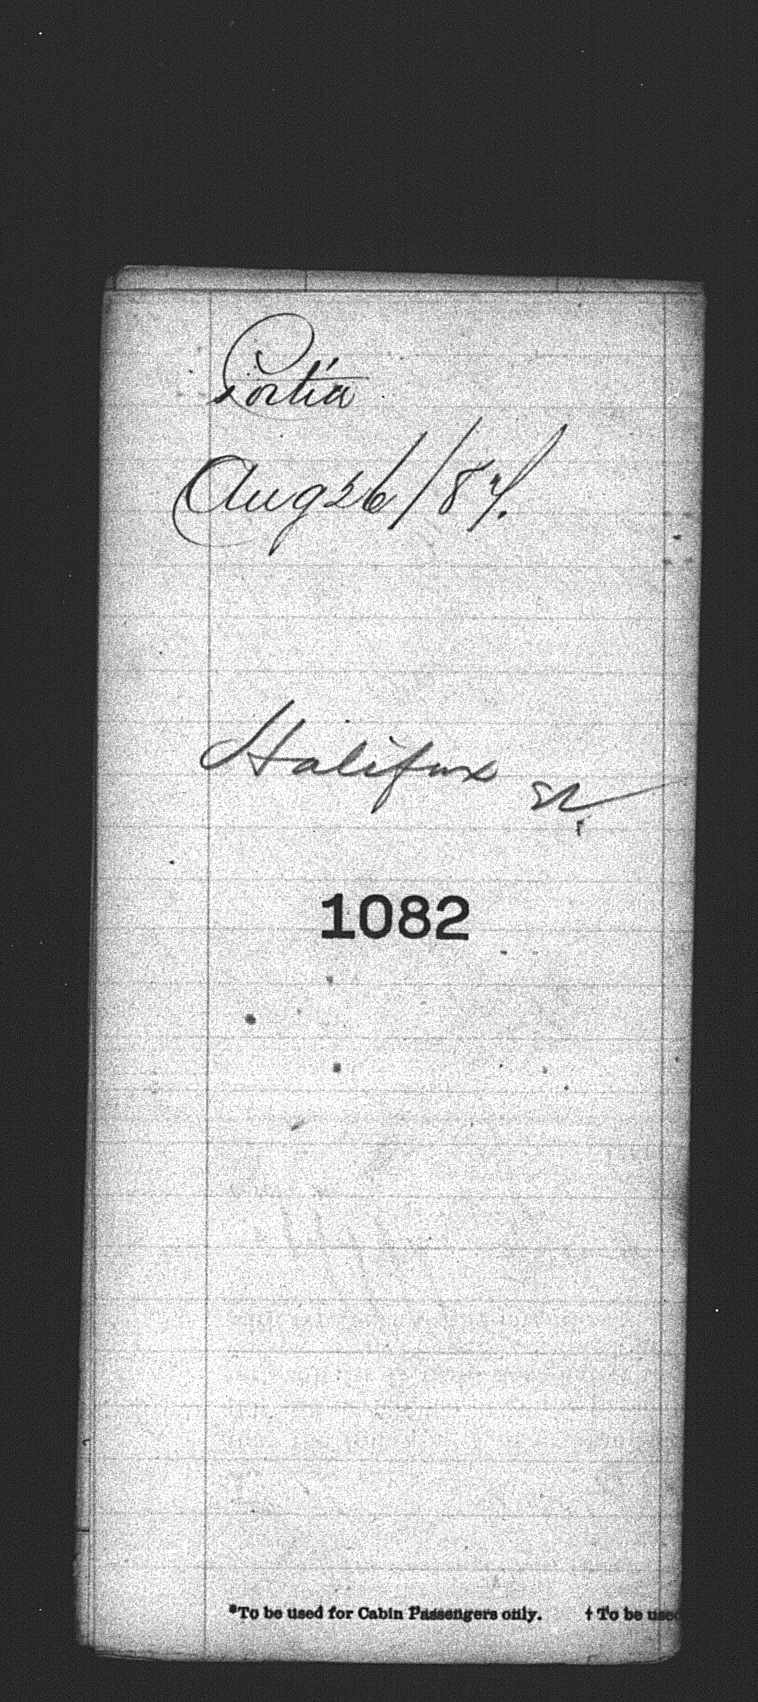 Portia
Aug 26/87.
Halifax
1082
*To be used for Cabin Passengers only. † To be used